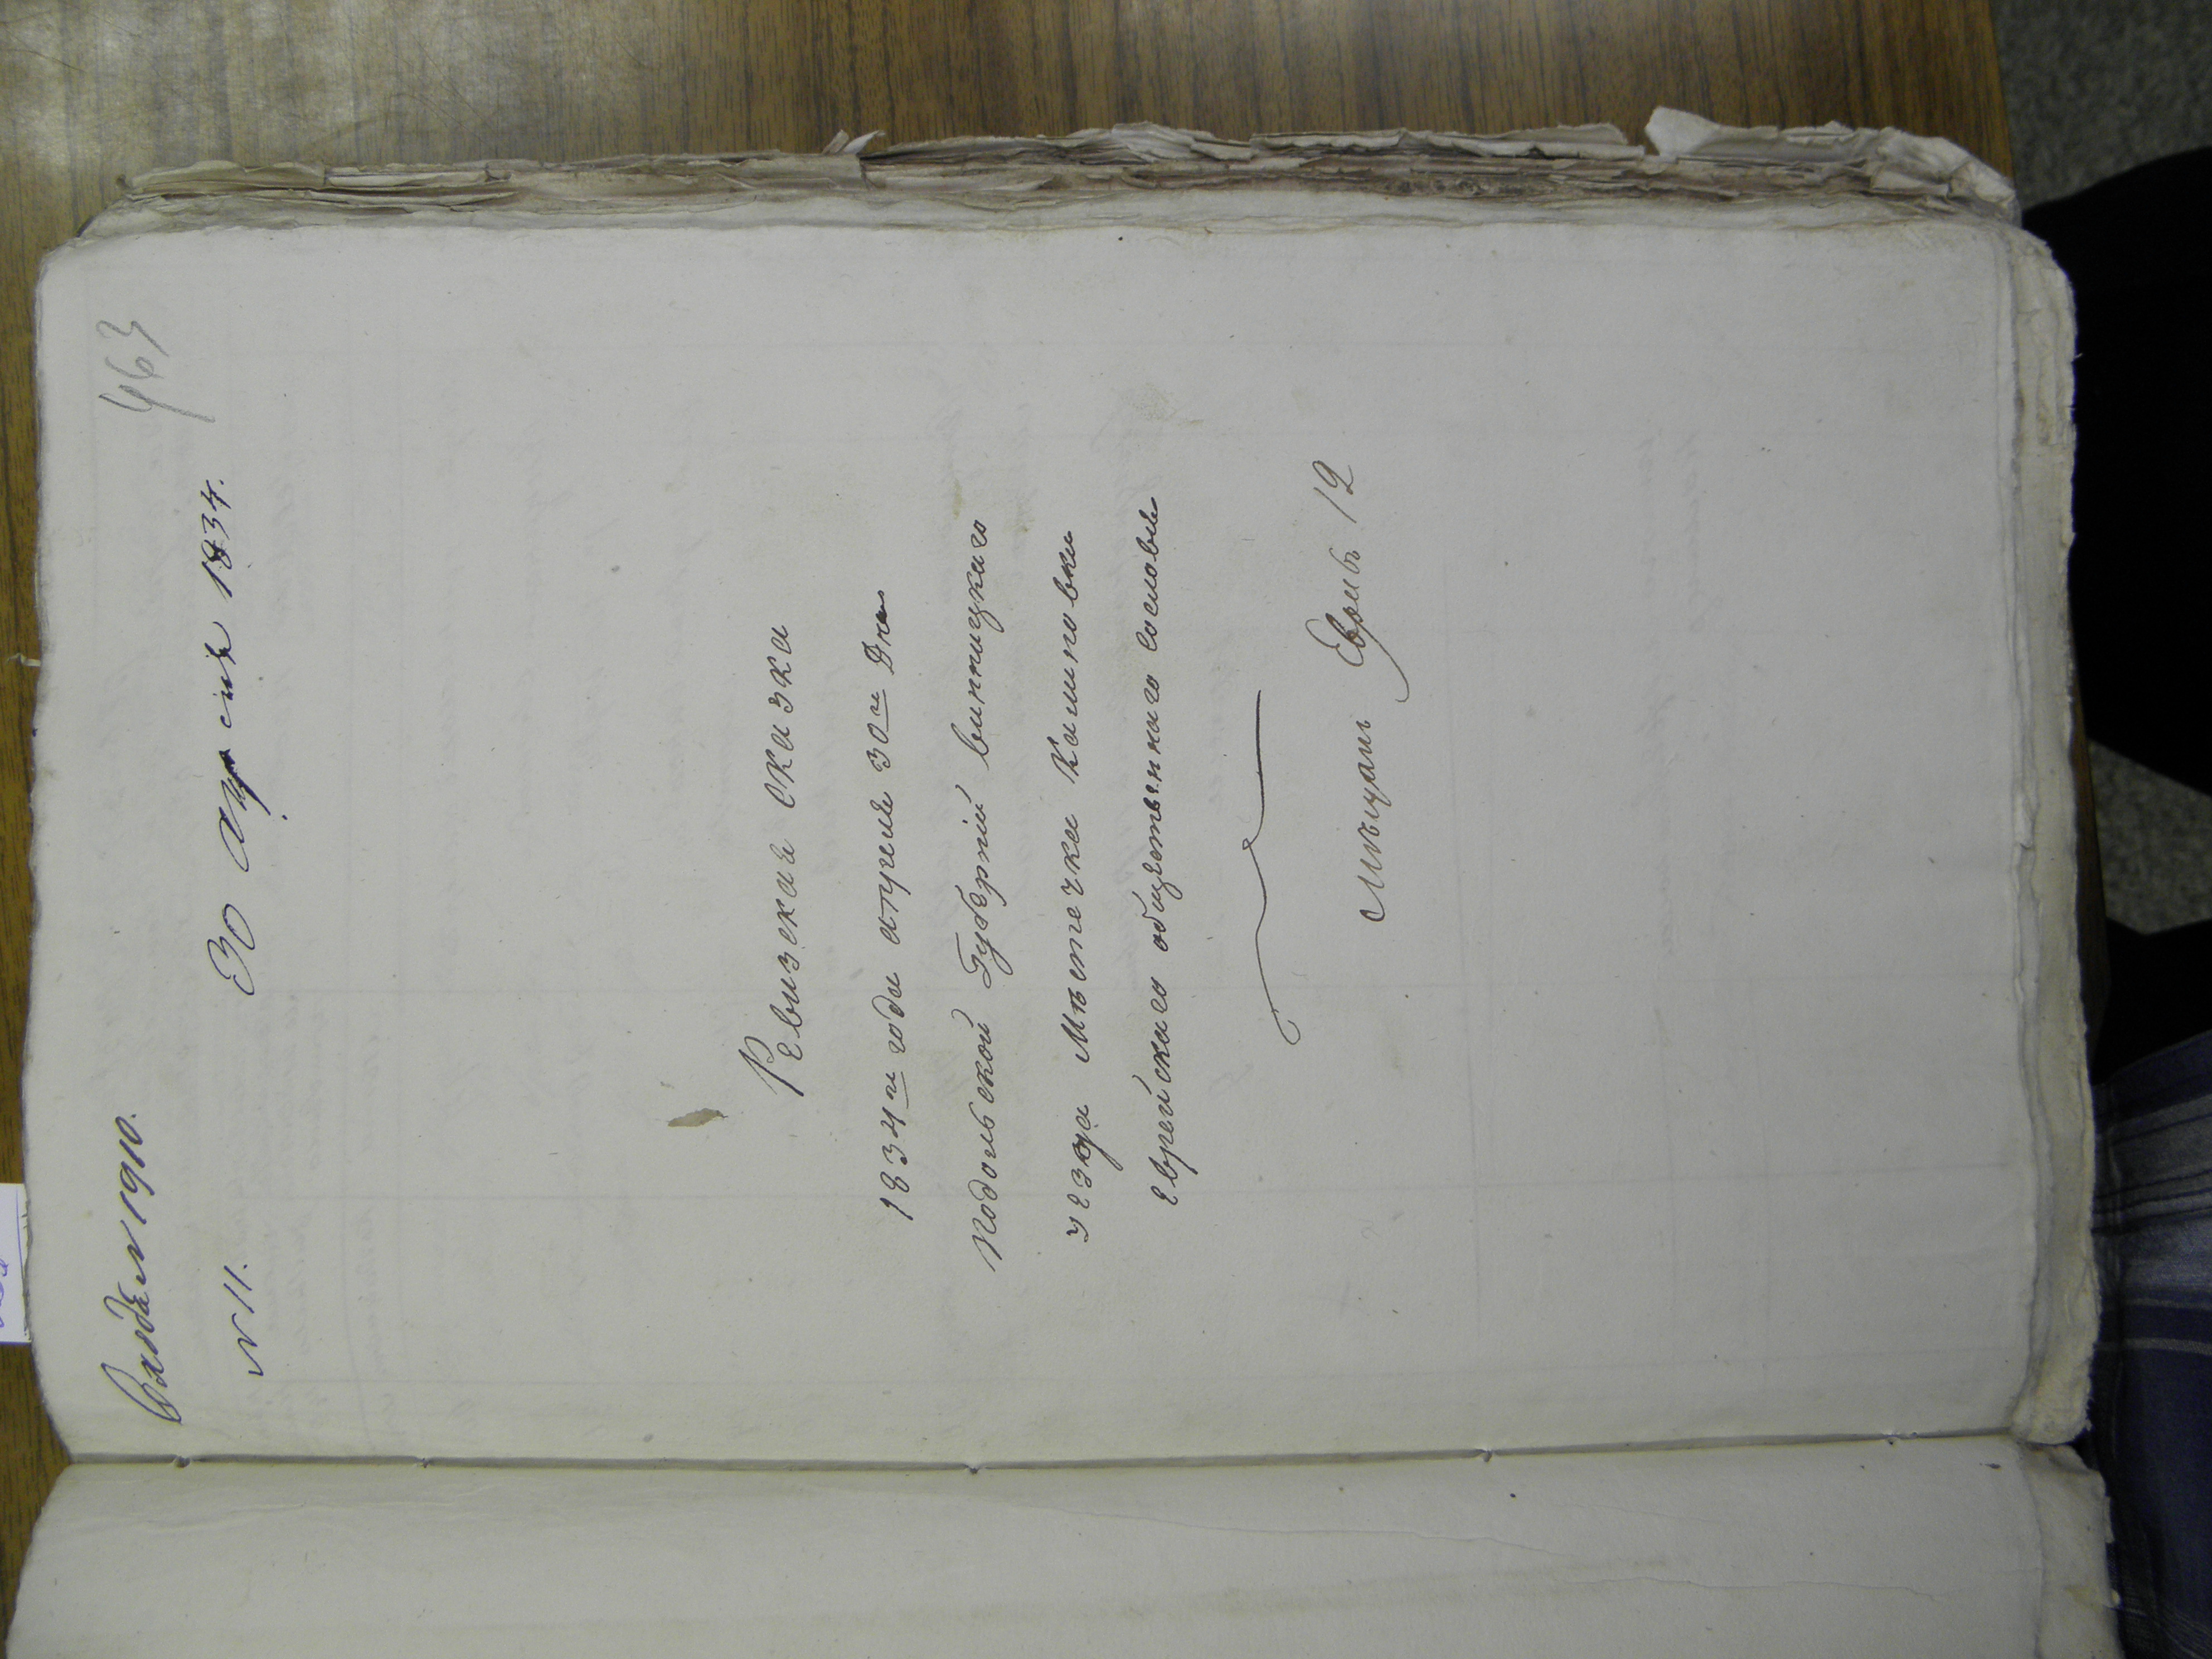 463
№ 1910.
№ 11. 30 Апреля 1834.
Ревизская сказка
1834го года апреля 30го Дня
Подольской Губерніи винницкаго
уезда Местечка Калиновки
еврейскаго общественнаго сословія
Мещанъ Евреевъ 12